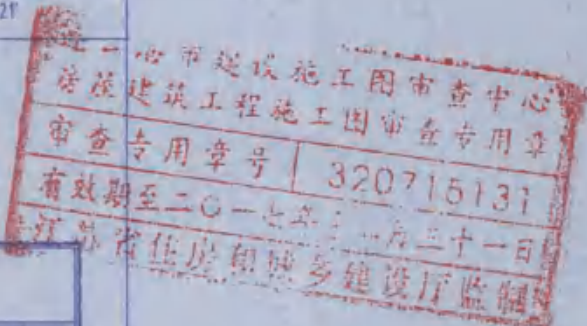 21
市建设施工图审查中心
房屋建筑工程施工图审查专用章
审查专用章号 320715131
有效期至二〇一七年 月三十一日
江苏省住房和城乡建设厅监制